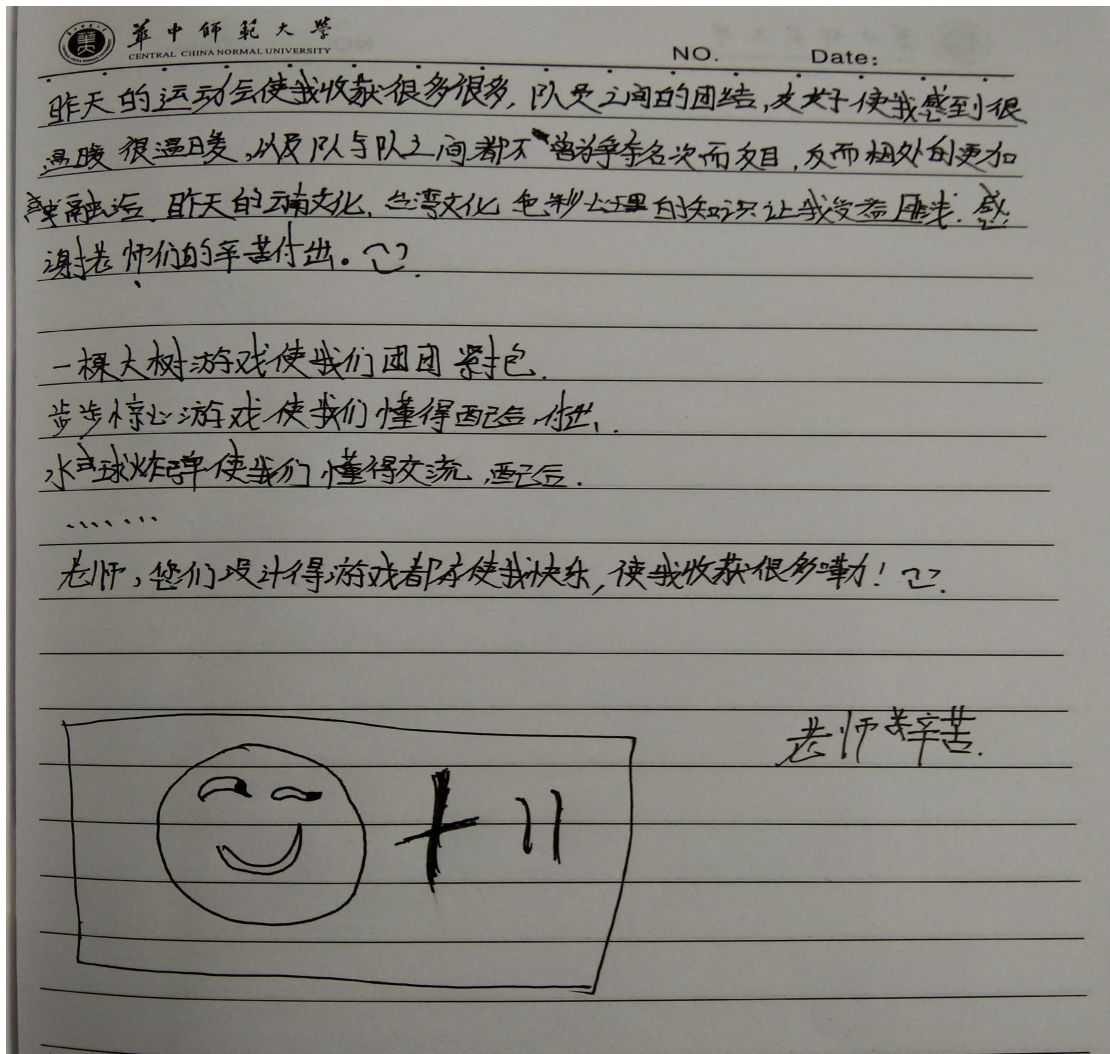 華中師範大學
CENTRAL CHINA NORMAL UNIVERSITY
NO. Date:
昨天的运动会使我收获很多很多,队员之间的团结,友好使我感到很
温暖很温暖,以及队与队之间都不曾为争夺名次而反目,反而相处的更加
融洽.昨天的云南文化,台湾文化,急救处理的知识让我受益匪浅.感
谢老师们的辛苦付出。
一棵大树游戏使我们团团紧抱.
步步惊心游戏使我们懂得配合,付出.
水球炸弹使我们懂得交流,配合.
.......
老师,您们设计得游戏都有使我快乐,使我收获很多嘞!
老师辛苦.
+11